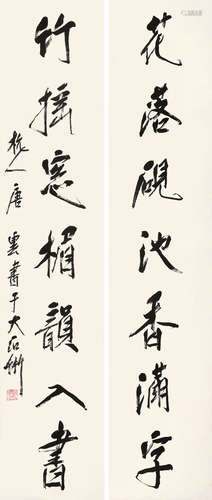 花落硯池香滿字
竹搖窗楣韻入書
唐雲書于大石